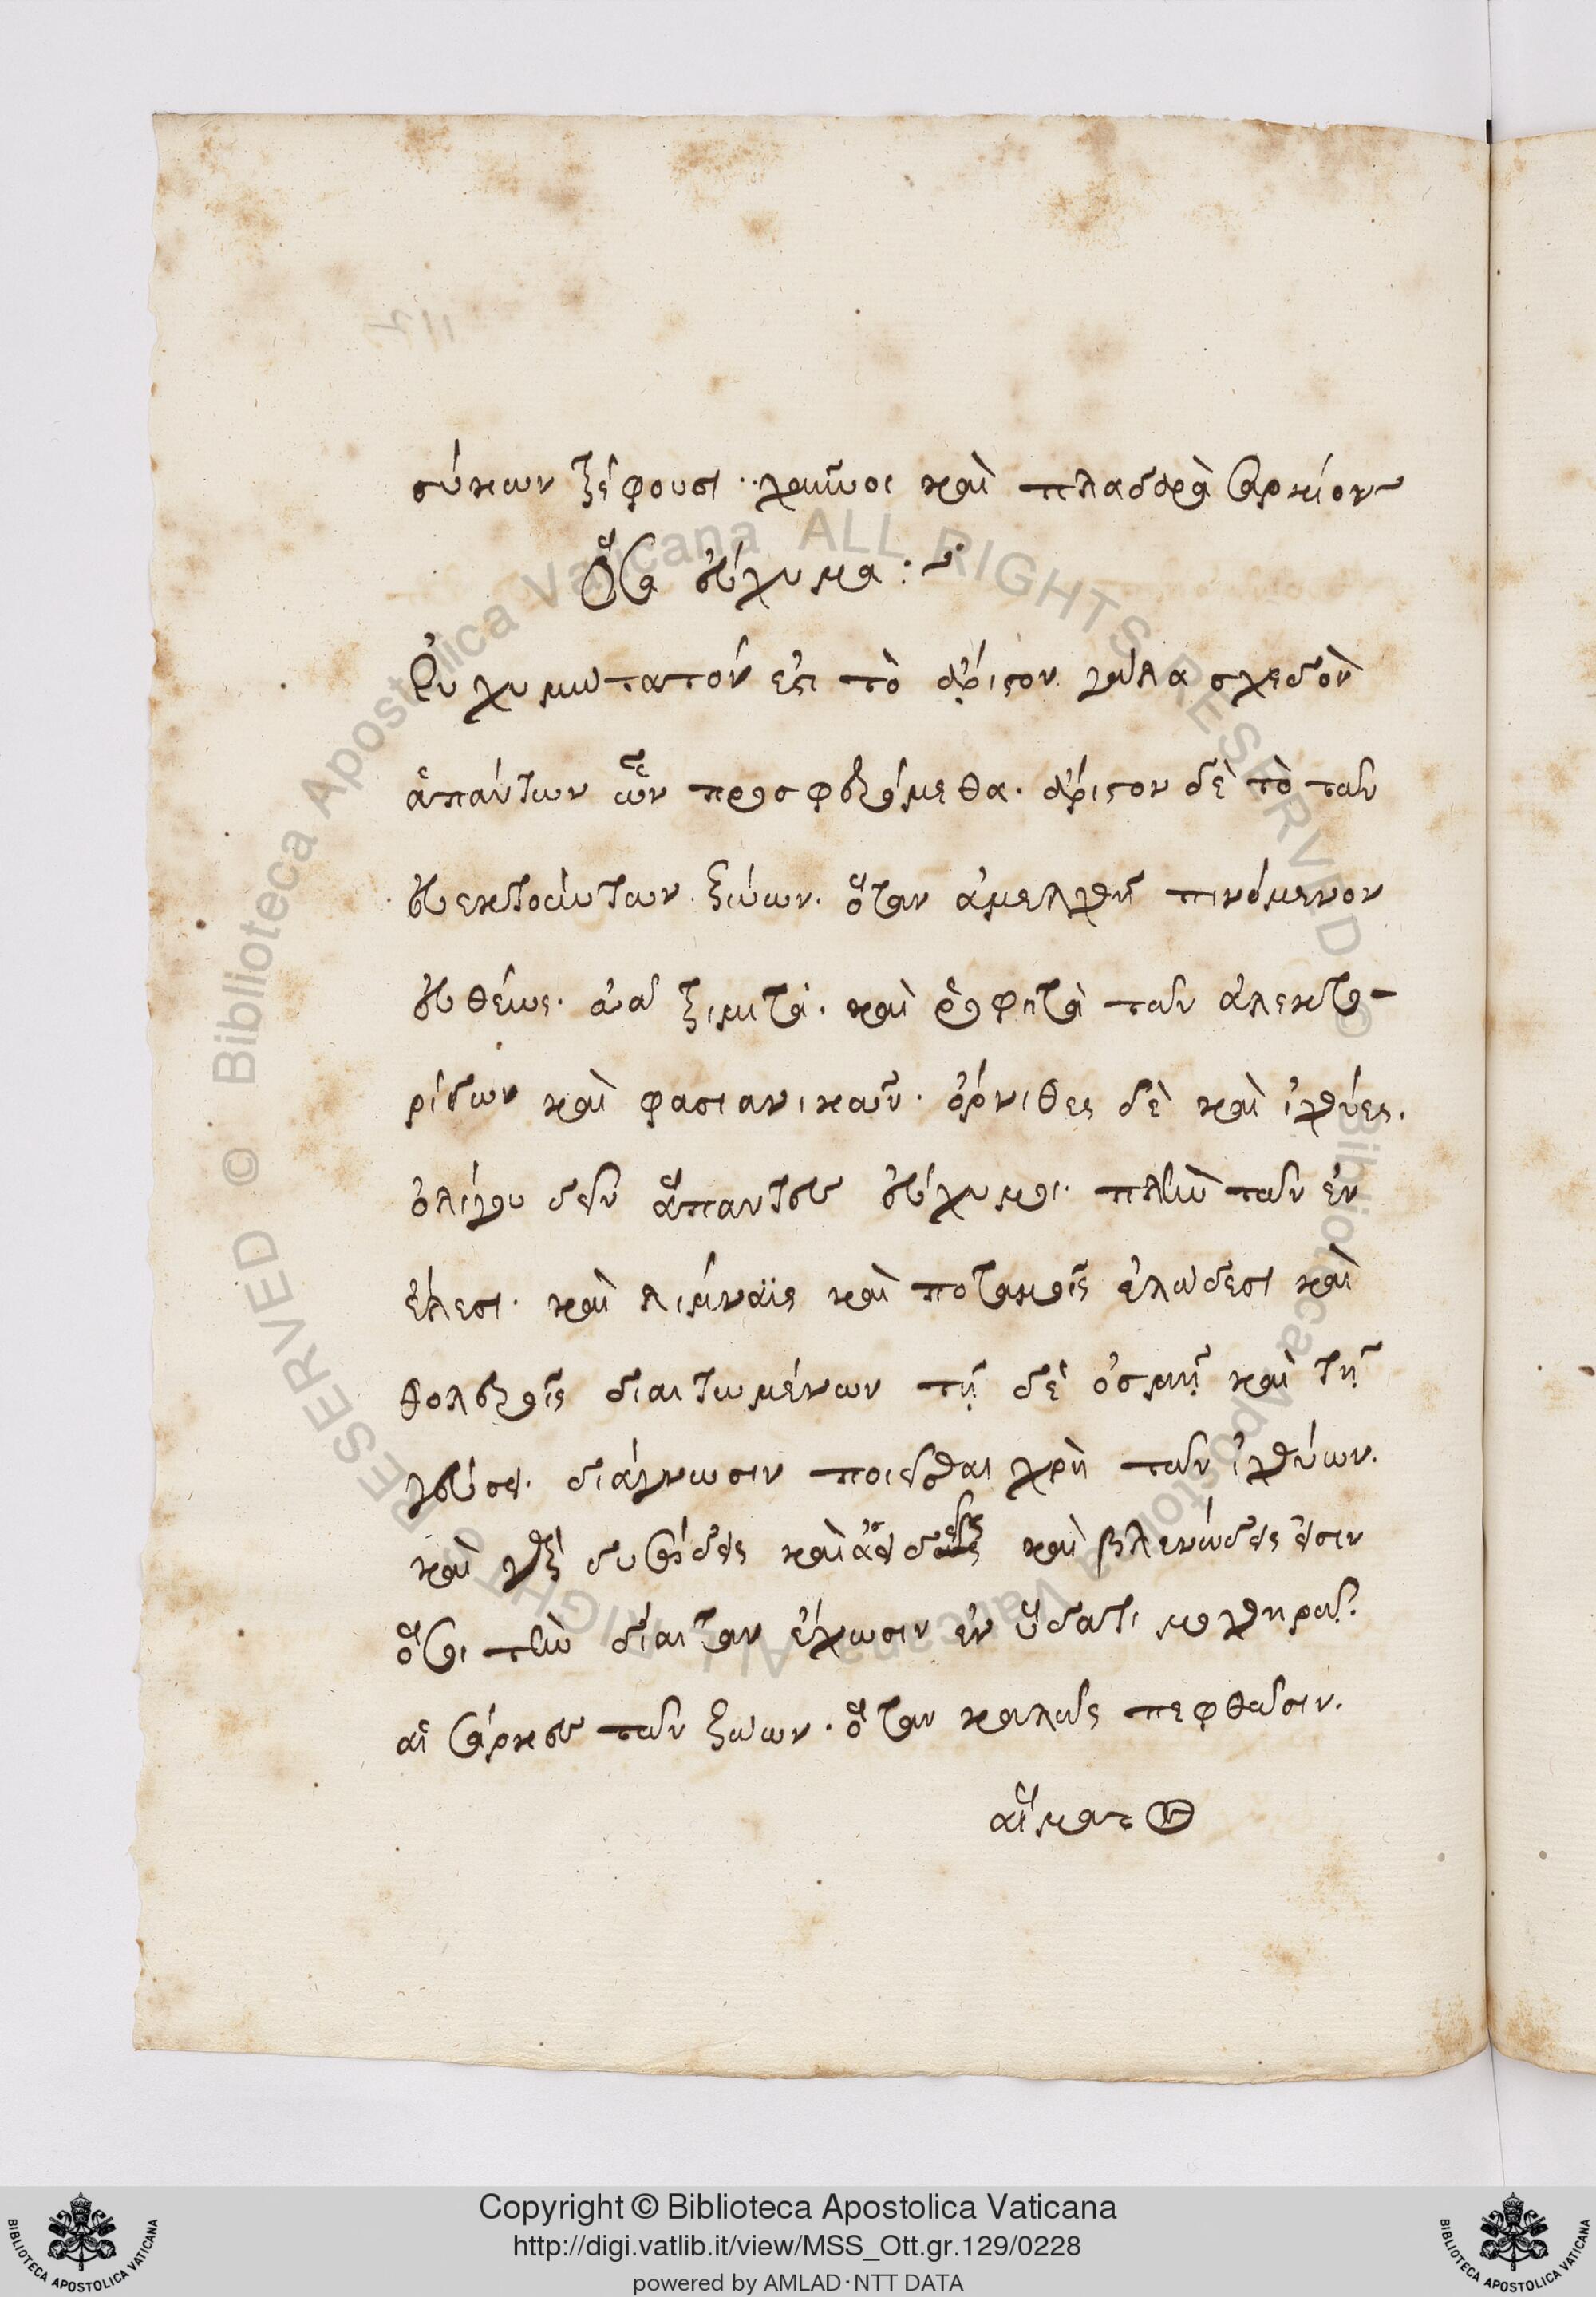 σύκων τρέφουσι· χαύνοι καὶ πλαδαρὰ σαρκίον
Ὅσα εὔχυμα :
Εὐχυμώτατόν ἐστι τὸ ἄριστον γάλα σχεδὸν
ἁπάντων ὧν προσφερόμεθα. ἄριστον δὲ τὸ τῶν
εὐεκτούντων ζώων. ὅταν ἀμελχθῆ πινόμενον
εὐθέως. ὠὰ τρομητὰ. καὶ ῥοφητὰ τῶν ἀλεκτο-
ρίδων καὶ φασιανικῶν. ὄρνιθες δὲ καὶ ἰχθύες.
ὀλίγου δεῖν ἅπαντες εὔχυμοι. πλὴν τῶν ἐν
ἕλεσι. καὶ λίμναϊς καὶ ποταμοῖς ἑλώδεσι καὶ
θολεροῖς διαιτωμένων τῇ δὲ ὀσμῇ καὶ τῇ
γεύσει. διάγνωσιν ποιεῖσθαι χρὴ τῶν ἰχθύων.
καὶ καὶ βλενώδεις εἰσιν
ὅσοι τὴν δίαιταν ἔχωσιν ἐν ὕδατι μοχθηρῶ.
αἱ σάρκες τῶν ζώων. ὅταν καλῶς πεφθῶσιν.
αἷμα
Copyright © Biblioteca Apostolica Vaticana
http://digi.vatlib.it/view/MSS_Ott.gr.129/0228
powered by AMLAD·NTT DATA
BIBLIOTECA APOSTOLICA VATICANA
BIBLIOTECA APOSTOLICA VATICANA
© Biblioteca Apostolica Vaticana ALL RIGHTS RESERVED © Biblioteca Apostolica Vaticana ALL RIGHTS RESERVED